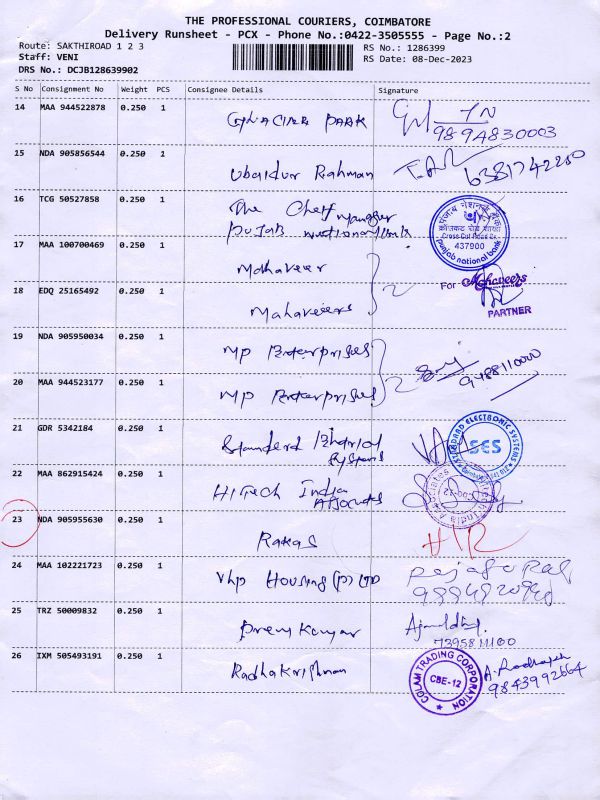 THE PROFESSIONAL COURIERS, COIMBATORE
Delivery Runsheet - PCX - Phone No.:0422-3505555 - Page No.:2
Route: SAKTHIROAD 1 2 3
RS No.: 1286399
Staff: VENI
RS Date: 08-Dec-2023
DRS No.: DCJB128639902
S No Consignment No Weight PCS Consignee Details Signature
14 MAA 944522878 0.250 1
PARK
989A830003
15 NDA 905856544 0.250 1 Ubaidur Rahman
16 TCG 50527858 0.250 1 The Cheff Manager
437900
punjab national bank
17 MAA 100700469 0.250 1 Mahaveer
For Mahaveers
18 EDQ 25165492 0.250 1 Mahaveers
PARTNER
19 NDA 905950034 0.250 1 MP Enterprises
9488110000
20 MAA 944523177 0.250 1 MP Enterprises
21 GDR 5342184 0.250 1 Systems
STANDARD ELECTRONIC SYSTEMS
SES
22 MAA 862915424 0.250 1 HiTech India
Associates
23 NDA 905955630 0.250 1 Rakas
24 MAA 102221723 0.250 1 Vhp Housing (P) LTD
25 TRZ 50009832 0.250 1 Prem Kumar
26 IXM 505493191 0.250 1 Radhakrishnan
COLAM TRADING CORPORATION
CBE-12
9843992664